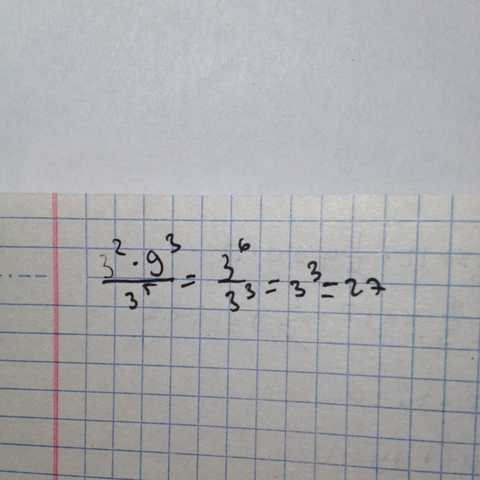 3² · 9³ / 3⁵ = 3⁶ / 3³ = 3³ = 27